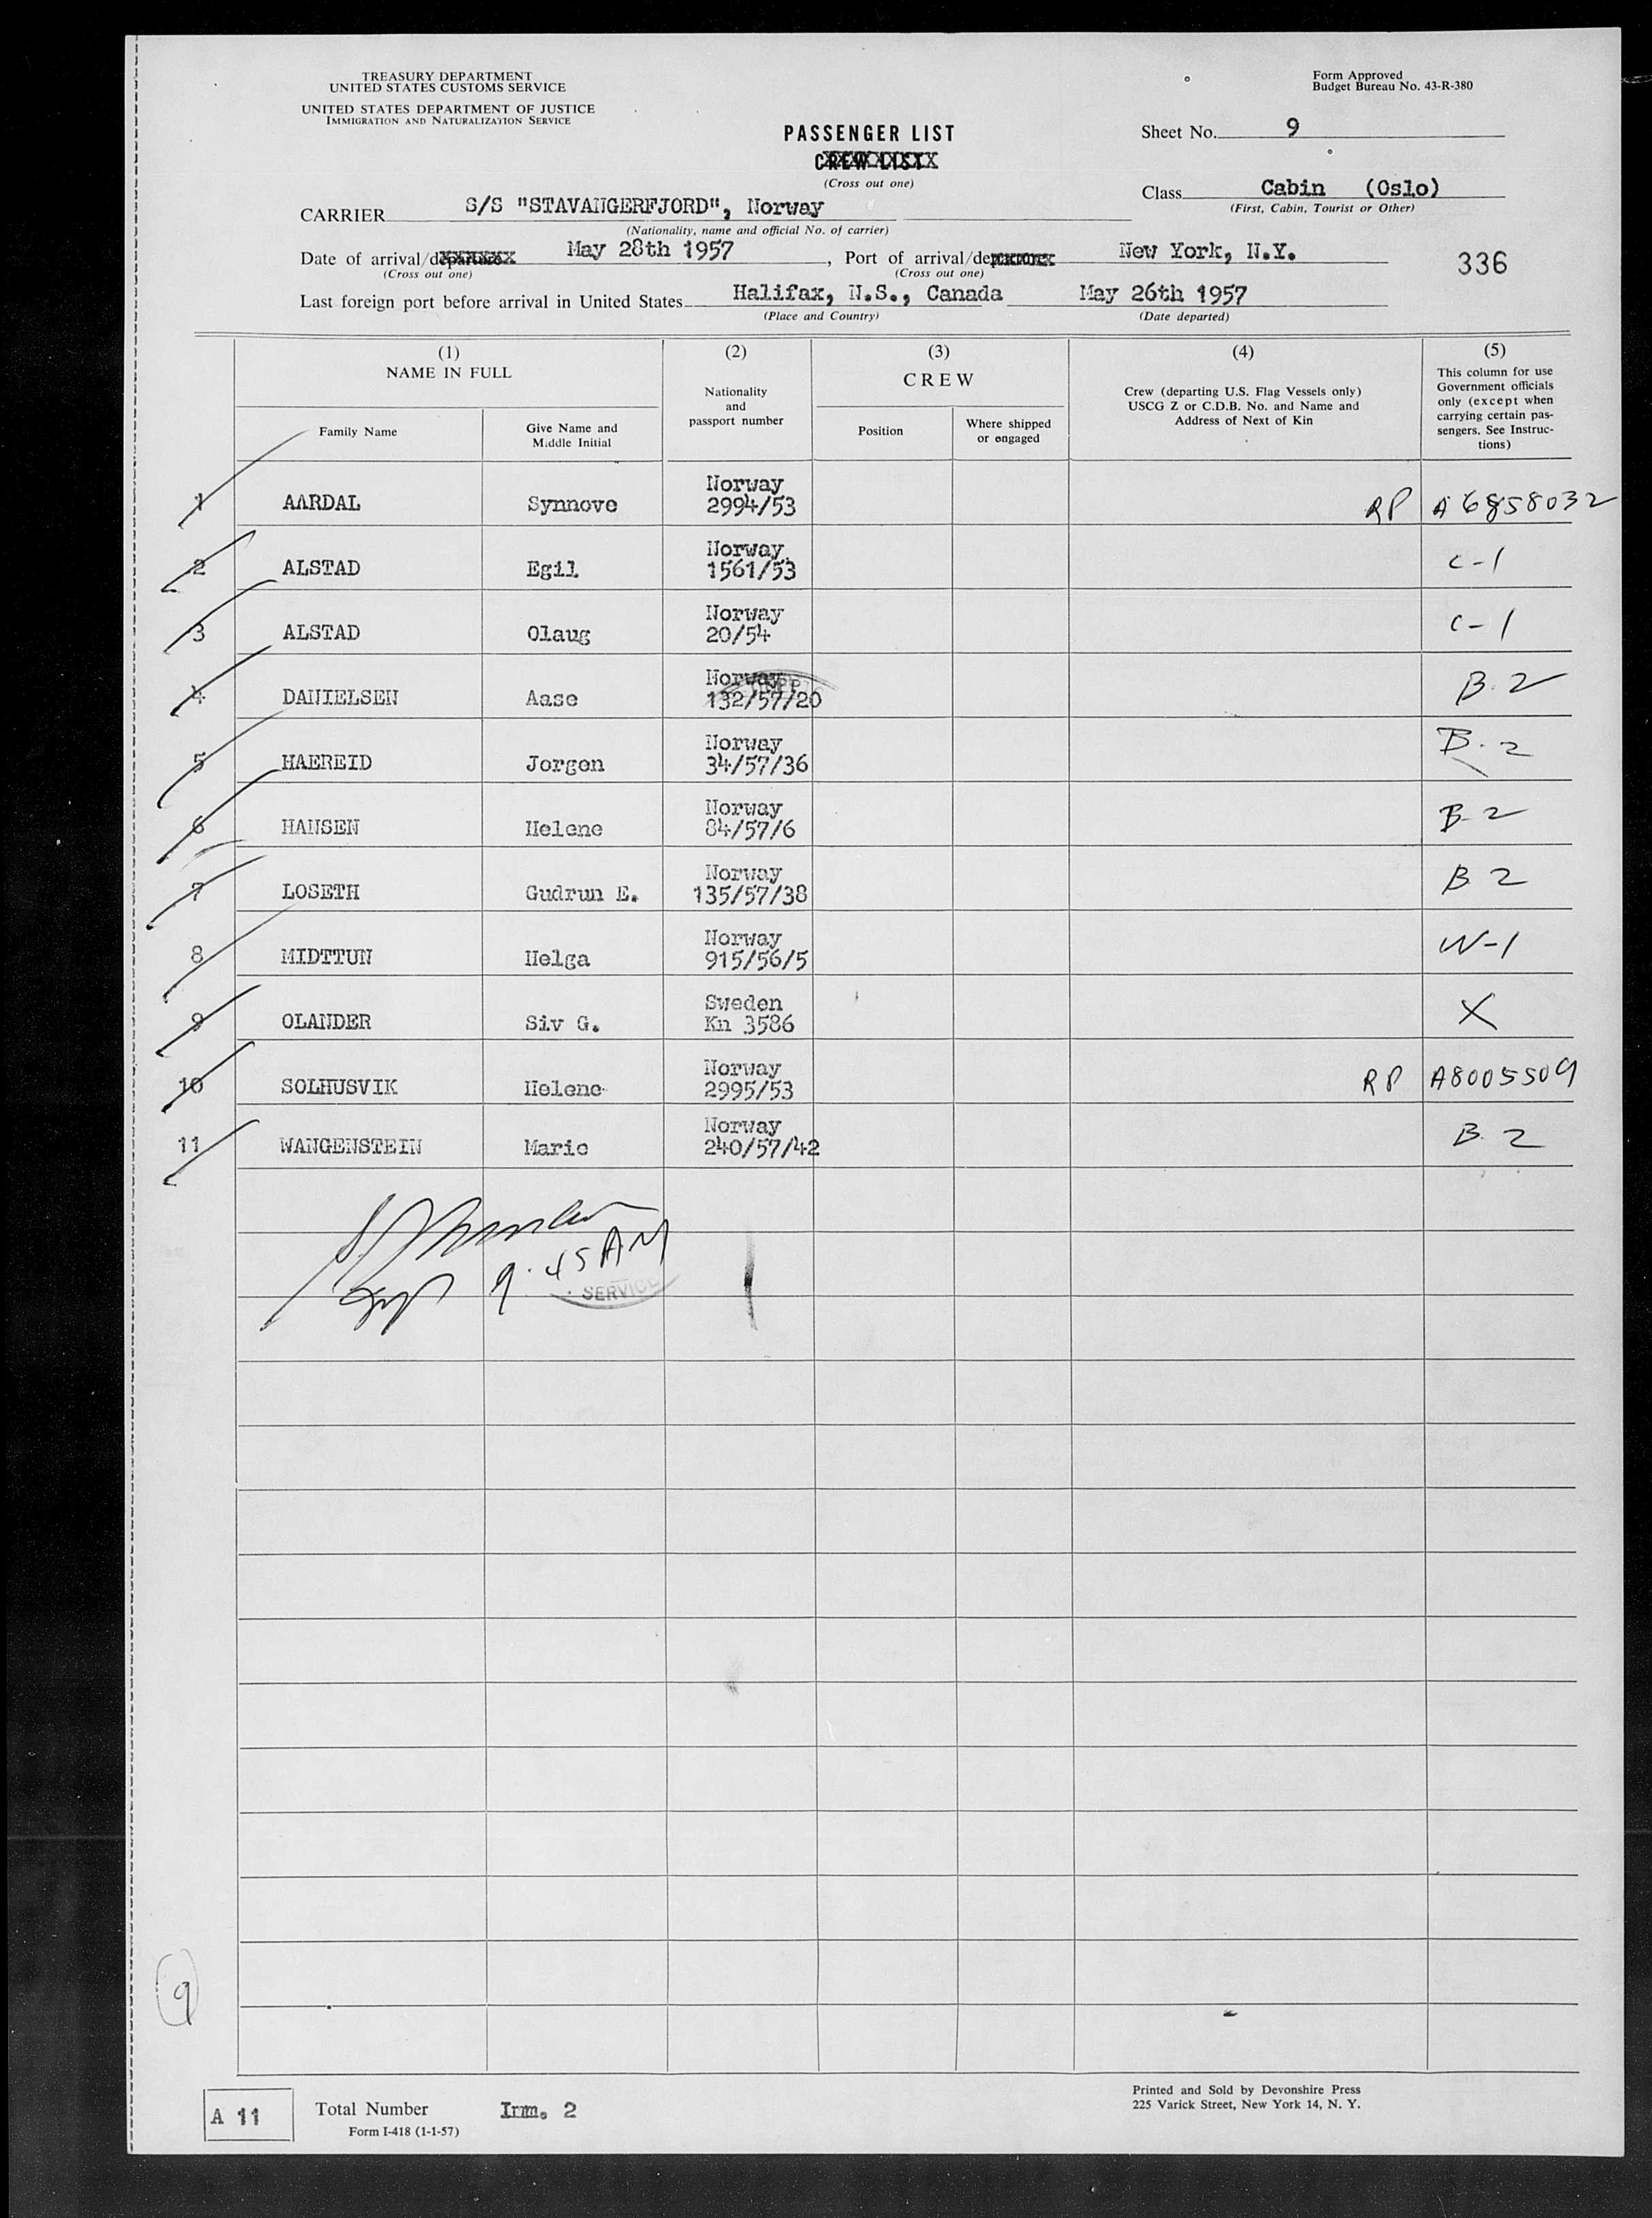 TREASURY DEPARTMENT
UNITED STATES CUSTOMS SERVICE
UNITED STATES DEPARTMENT OF JUSTICE
IMMIGRATION AND NATURALIZATION SERVICE
Form Approved
Budget Bureau No. 43-R-380
PASSENGER LIST
CREW LIST
(Cross out one)
Sheet No. 9
Class Cabin (Oslo)
(First, Cabin, Tourist or Other)
CARRIER S/S "STAVANGERFJORD", Norway
(Nationality, name and official No. of carrier)
Date of arrival/departure May 28th 1957, Port of arrival/departure New York, N.Y.
(Cross out one) (Cross out one)
336
Last foreign port before arrival in United States Halifax, N.S., Canada May 26th 1957
(Place and Country) (Date departed)
(1) (2) (3) (4) (5)
NAME IN FULL
Family Name
Give Name and
Middle Initial
Nationality
and
passport number
CREW
Position
Where shipped
or engaged
Crew (departing U.S. Flag Vessels only)
USCG Z or C.D.B. No. and Name and
Address of Next of Kin
This column for use
Government officials
only (except when
carrying certain pas-
sengers. See Instruc-
tions)
Norway
1 AARDAL Synnove 2994/53 RP A6858032
Norway
2 ALSTAD Egil 1561/53 C-1
Norway
3 ALSTAD Olaug 20/54 C-1
Norway
4 DANIELSEN Aase 132/57/20 B.2
Norway
5 HAEREID Jorgen 34/57/36 B-2
Norway
6 HANSEN Helene 84/57/6 B-2
Norway
7 LOSETH Gudrun E. 135/57/38 B 2
Norway
8 MIDTTUN Helga 915/56/5 W-1
Sweden
9 OLANDER Siv G. Kn 3586 X
Norway
10 SOLHUSVIK Helene 2995/53 RP A8005509
Norway
11 WANGENSTEIN Marie 240/57/42 B 2
9:45 AM
SERVICE
9
A 11
Total Number Imm. 2
Form I-418 (1-1-57)
Printed and Sold by Devonshire Press
225 Varick Street, New York 14, N. Y.